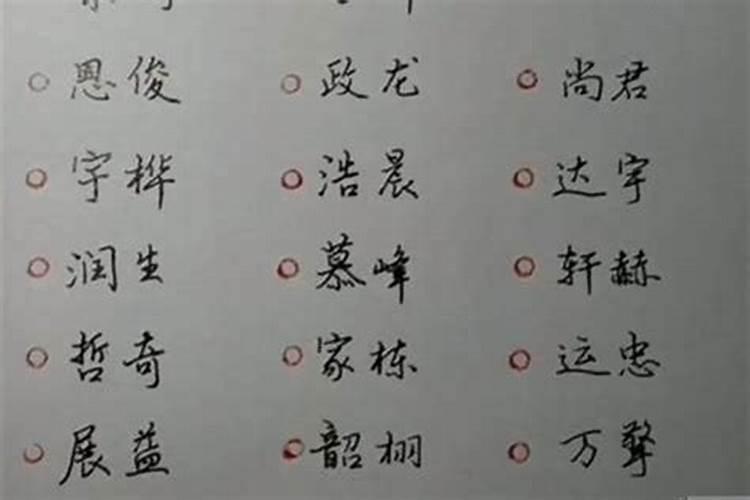 恩俊 政龙 尚君
宇桦 浩晨 达宇
润生 慕峰 轩赫
哲奇 家栋 运忠
展益 韶栩 万擎